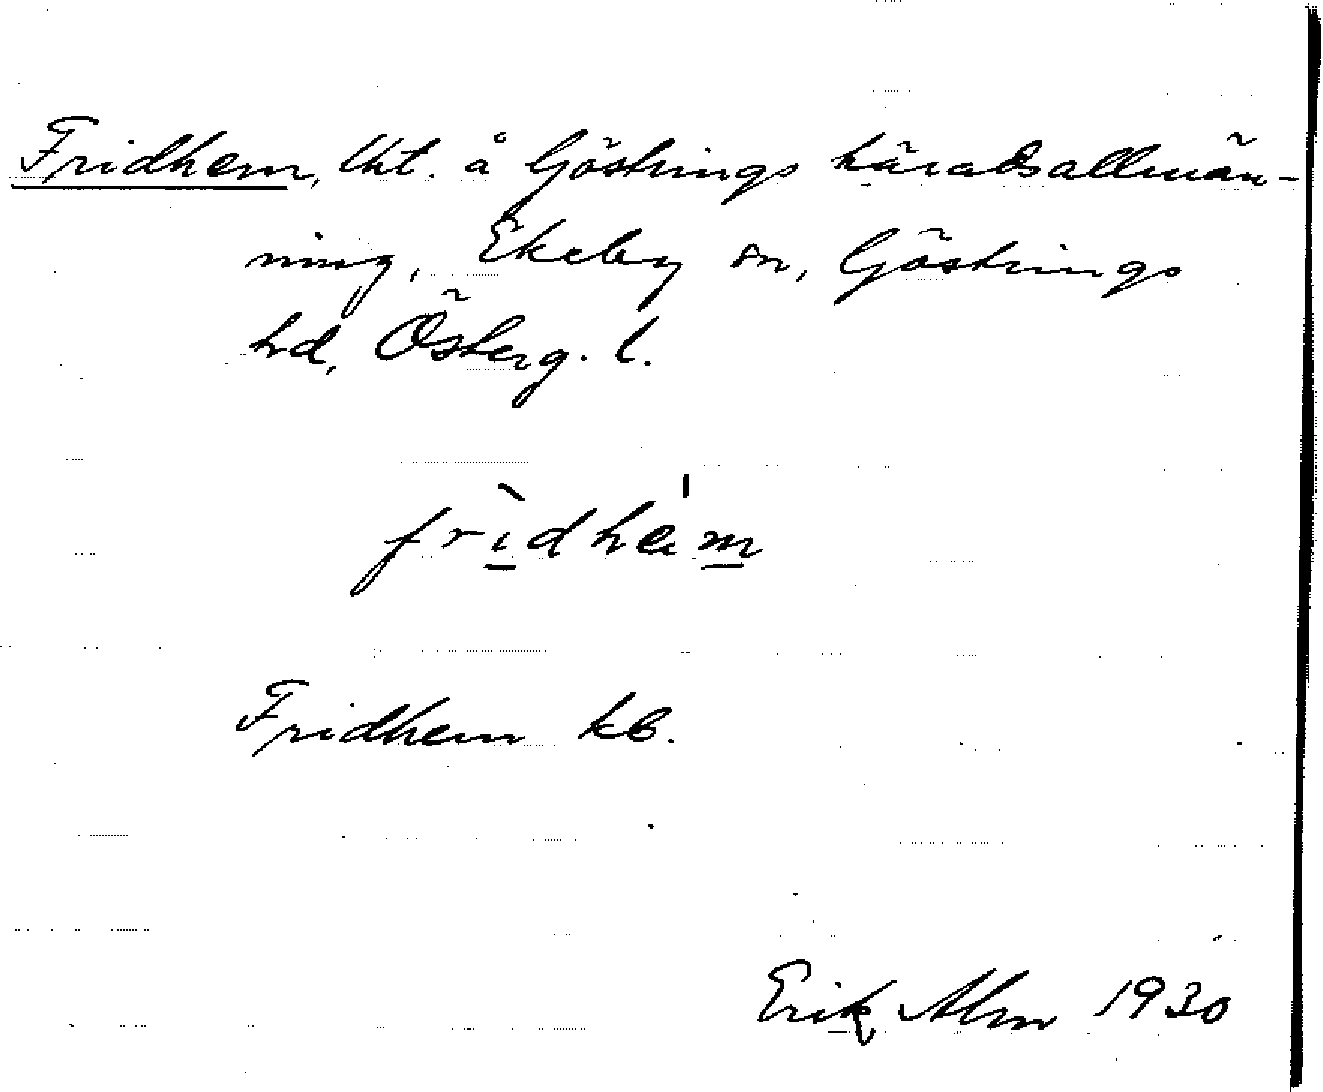 Fridhem, lht. å Göstrings häradsallmän-
ning, Ekeby sn, Göstrings
hd, Österg. l.
frìdhem
Fridhem kb.
Erik Alm 1930